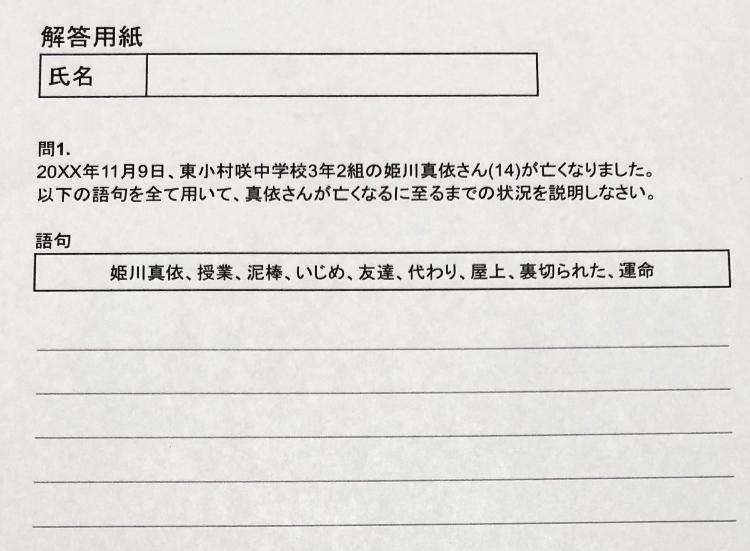 解答用紙
氏名
問1.
20XX年11月9日、東小村咲中学校3年2組の姫川真依さん(14)が亡くなりました。
以下の語句を全て用いて、真依さんが亡くなるに至るまでの状況を説明しなさい。
語句
姫川真依、授業、泥棒、いじめ、友達、代わり、屋上、裏切られた、運命